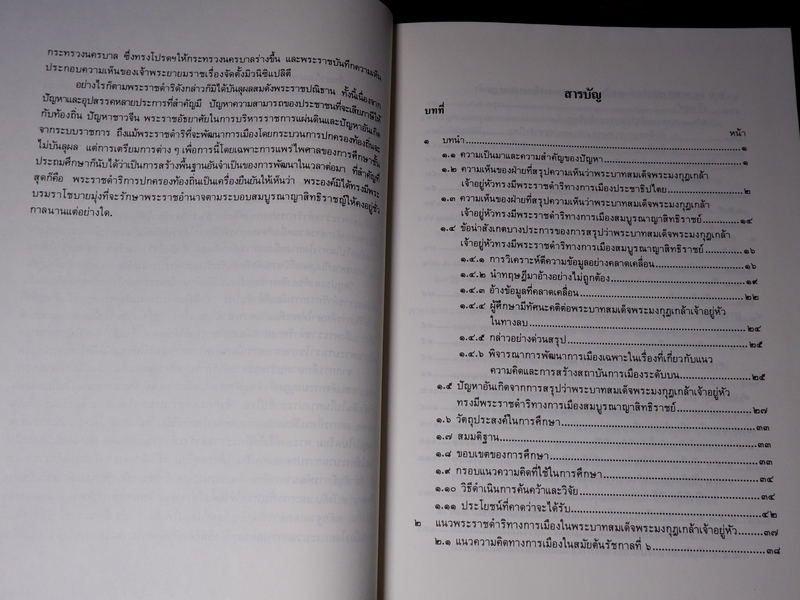 กระทรวงนครบาล ซึ่งทรงโปรดฯให้กระทรวงนครบาลร่างขึ้น และพระราชบันทึกความเห็น
ประกอบความเห็นของเจ้าพระยายมราชเรื่องจัดตั้งมิวนิซิแปลิตี
อย่างไรก็ตามพระราชดำริดังกล่าวก็มิได้บันลุผลสมดังพระราชปณิธาน ทั้งนี้เนื่องจาก
ปัญหาและอุปสรรคหลายประการที่สำคัญมี ปัญหาความสามารถของประชาชนที่จะเสียภาษีให้
กับท้องถิ่น ปัญหาชาวจีน พระราชอัธยาศัยในการบริหารราชการแผ่นดินและปัญหาอันเกิด
จากระบบราชการ ถึงแม้พระราชดำริที่จะพัฒนาการเมืองโดยกระบวนการปกครองท้องถิ่นจะ
ไม่บันลุผล แต่การเตรียมการต่าง ๆ เพื่อการนี้โดยเฉพาะการแพร่ไพศาลของการศึกษาชั้น
ประถมศึกษาก็นับได้ว่าเป็นการสร้างพื้นฐานอันจำเป็นของการพัฒนาในเวลาต่อมา ที่สำคัญที่
สุดก็คือ พระราชดำริการปกครองท้องถิ่นเป็นเครื่องยืนยันให้เห็นว่า พระองค์มิได้ทรงมีพระ
บรมราโชบายมุ่งที่จะรักษาพระราชอำนาจตามระบอบสมบูรณาญาสิทธิราชญ์ให้คงอยู่ชั่ว
กาลนานแต่อย่างใด.
สารบัญ
บทที่
หน้า
๑ บทนำ ๑
๑.๑ ความเป็นมาและความสำคัญของปัญหา ๑
๑.๒ ความเห็นของฝ่ายที่สรุปความเห็นว่าพระบาทสมเด็จพระมงกุฎเกล้า
เจ้าอยู่หัวทรงมีพระราชดำริทางการเมืองประชาธิปไตย ๒
๑.๓ ความเห็นของฝ่ายที่สรุปความเห็นว่าพระบาทสมเด็จพระมงกุฎเกล้า
เจ้าอยู่หัวทรงมีพระราชดำริทางการเมืองสมบูรณาญาสิทธิราชย์ ๑๔
๑.๔ ข้อน่าสังเกตบางประการของการสรุปว่าพระบาทสมเด็จพระมงกุฎเกล้า
เจ้าอยู่หัวทรงมีพระราชดำริทางการเมืองสมบูรณาญาสิทธิราชย์ ๑๖
๑.๔.๑ การวิเคราะห์ตีความข้อมูลอย่างคลาดเคลื่อน ๑๖
๑.๔.๒ นำทฤษฎีมาอ้างอย่างไม่ถูกต้อง ๑๙
๑.๔.๓ อ้างข้อมูลที่คลาดเคลื่อน ๒๒
๑.๔.๔ ผู้ศึกษามีทัศนะคติต่อพระบาทสมเด็จพระมงกุฎเกล้าเจ้าอยู่หัว
ในทางลบ ๒๔
๑.๔.๕ กล่าวอย่างด่วนสรุป ๒๕
๑.๔.๖ พิจารณาการพัฒนาการเมืองเฉพาะในเรื่องที่เกี่ยวกับแนว
ความคิดและการสร้างสถาบันการเมืองระดับบน ๒๕
๑.๕ ปัญหาอันเกิดจากการสรุปว่าพระบาทสมเด็จพระมงกุฎเกล้าเจ้าอยู่หัว
ทรงมีพระราชดำริทางการเมืองสมบูรณาญาสิทธิราชย์ ๒๗
๑.๖ วัตถุประสงค์ในการศึกษา ๓๓
๑.๗ สมมติฐาน ๓๓
๑.๘ ขอบเขตของการศึกษา ๓๓
๑.๙ กรอบแนวความคิดที่ใช้ในการศึกษา ๓๔
๑.๑๐ วิธีดำเนินการค้นคว้าและวิจัย ๓๔
๑.๑๑ ประโยชน์ที่คาดว่าจะได้รับ ๔๒
๒ แนวพระราชดำริทางการเมืองในพระบาทสมเด็จพระมงกุฎเกล้าเจ้าอยู่หัว ๓๗
๒.๑ แนวความคิดทางการเมืองในสมัยต้นรัชกาลที่ ๖ ๓๘